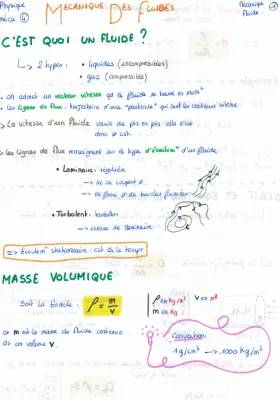 Physique
MECANIQUE DES FLUIDES
Mécanique Fluide
C'EST QUOI UN FLUIDE ?
↳ 2 types : • liquides (incompressibles)
• gaz (compressibles)
• On admet un vecteur vitesse qd le fluide se trouve en mvt
• Les lignes de flux : trajectoire d'une "particule" qui suit les vecteurs vitesse
> La vitesse d'un fluide varie de pts en pts elle n'est
donc cst.
> Les lignes de flux renseignent sur le type d'écoulemt d'un fluide
• Laminaire : régulière
→ ne se coupent
→ de bords fermées
• Turbulent : tourbillon
→ vitesse
=> Ecoulemt stationnaire : cst ds le temps
MASSE VOLUMIQUE
Soit la formule : ρ = m/V
ρ en kg/m³ V en m³
m en kg
où m est la masse de fluide contenue
ds un volume V.
Convention :
1g/cm³ → 1000 kg/m³